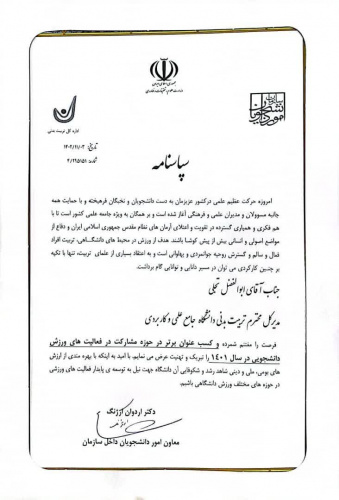 جمهوری اسلامی ایران
وزارت علوم، تحقیقات و فناوری
سازمان
امور دانشجویان
اداره کل تربیت بدنی
تاریخ: ۱۴۰۲/۱۱/۰۳
شماره: ۴/۲۹۵۱۵۱
سپاسنامه
امروزه حرکت عظیم علمی درکشور عزیزمان به دست دانشجویان و نخبگان فرهیخته و با حمایت همه
جانبه مسوولان و مدیران علمی و فرهنگی آغاز شده است و بر همگان به ویژه جامعه علمی کشور است تا با
هم فکری و همیاری گسترده در تقویت و اعتلای آرمان های نظام مقدس جمهوری اسلامی ایران و دفاع از
مواضع اصولی و انسانی بیش از پیش کوشا باشند. هدف از ورزش در محیط های دانشگاهی، تربیت افراد
فعال و سالم و گسترش روحیه جوانمردی و پهلوانی است و به اعتقاد بسیاری از علمای تربیت، تنها با تکیه
بر چنین کارکردی می توان در مسیر دانایی و توانایی گام برداشت.
جناب آقای ابوالفضل تجلی
مدیرکل محترم تربیت بدنی دانشگاه جامع علمی و کاربردی
فرصت را مغتنم شمرده و کسب عنوان برتر در حوزه مشارکت در فعالیت های ورزش
دانشجویی در سال ۱۴۰۱ را تبریک و تهنیت عرض می نمایم. با امید به اینکه با بهره مندی از ارزش
های بومی، ملی و دینی شاهد رشد و شکوفایی آن دانشگاه جهت نیل به توسعه ی پایدار فعالیت های ورزشی
در حوزه های مختلف ورزش دانشگاهی باشیم.
دکتر اردوان ارژنگ
معاون امور دانشجویان داخل سازمان